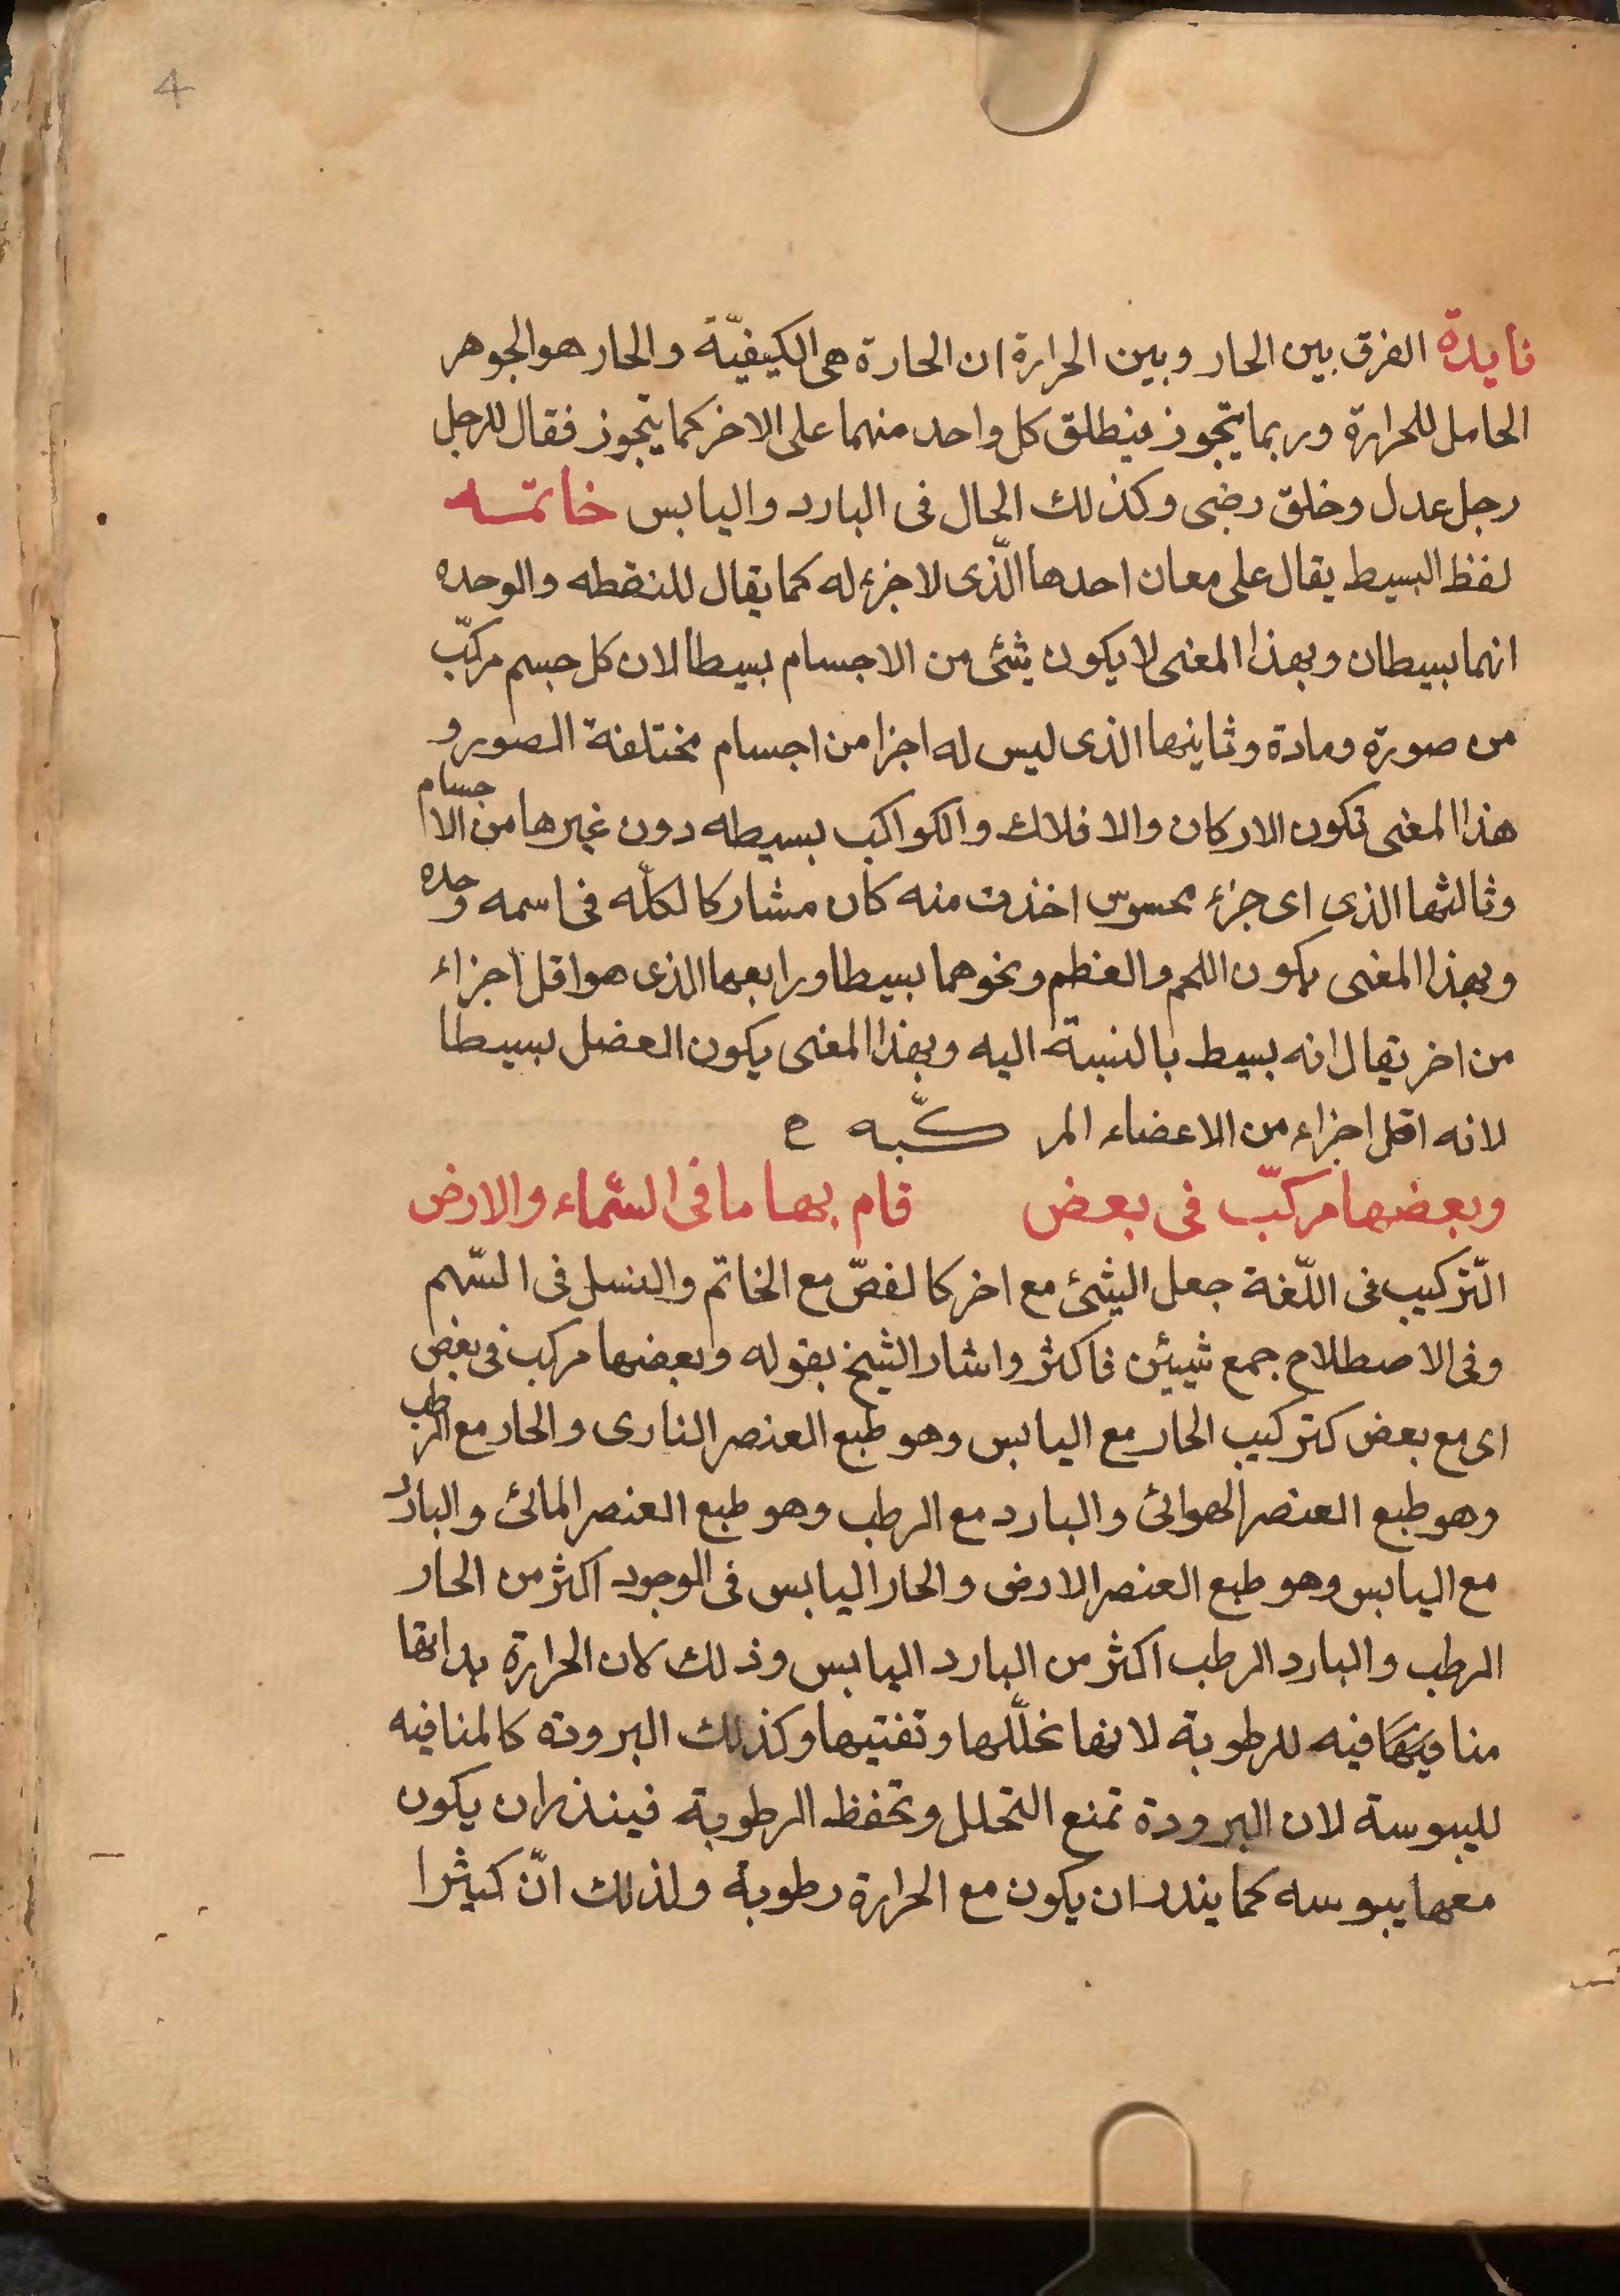 4
فايدة الفرق بين الحار وبين الحرارة ان الحارة هى الكيفيّة والحار هو الجوهر
الحامل للحرارة وربما يتجوز فينطلق كل واحد منهما على الاخر كما يتجوز فقال للرجل
رجل عدل وخلق رضى وكذلك الحال فى البارد واليابس خاتمـــه
لفظ البسيط يقال على معان احدها الّذى لا جزء له كما يقال للنقطه والوحده
انهما بسيطان وبهذا المعنى لا يكون شئى من الاجسام بسيطا لان كل جسم مركّب
من صورة ومادة وثاينها الذى ليس له اجزا من اجسام مختلفة الصور و
هذا المعنى تكون الاركان والافلاك والكواكب بسيطه دون غيرها من الاجسام
وثالثها الذى اى جزء محسوس اخذت منه كان مشاركا لكلّه فى اسمه وحده
وبهذا المعنى يكون اللحم والعظم ونحوهما بسيطا ورابعها الذى هو اقل اجزاء
من اخر يقال انه بسيط بالنسبة اليه وبهذا المعنى يكون العضل بسيطا
لانه اقل اجزاء من الاعضاء المركّبه
وبعضها مركبّ فى بعض قام بها ما فى السّماء والارض
التّركيب فى اللّغة جعل الشئ مع اخر كالفصّ مع الخاتم والنسل فى السّهم
وفى الاصطلاح جمع شيئين فاكثر واشار الشيخ بقوله وبعضها مركب فى بعض
اى مع بعض كتركيب الحار مع اليابس وهو طبع العنصر النارى والحار مع الرطب
وهو طبع العنصر الهوائى والبارد مع الرطب وهو طبع العنصر المائى والبارد
مع اليابس وهو طبع العنصر الارض والحار اليابس فى الوجود اكثر من الحار
الرطب والبارد الرطب اكثر من البارد اليابس وذلك لان الحرارة بذاتها
منافيه للرطوبة لانها تحلّلها وتفتيها وكذلك البرودة كالمنافيه
لليبوسة لان البرودة تمنع التحلل وتحفظ الرطوبة فيندر ان يكون
معها يبوسه كما يندر ان يكون مع الحرارة رطوبة ولذلك انّ كثيرا